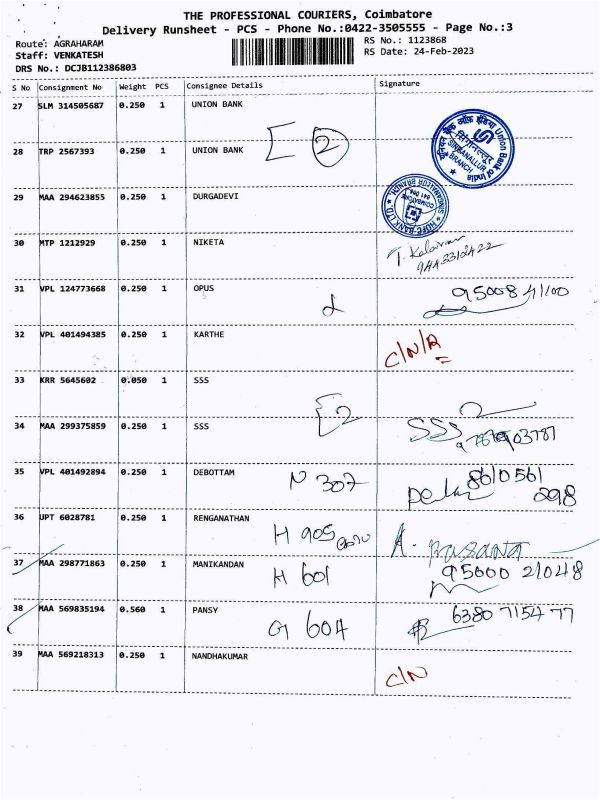 THE PROFESSIONAL COURIERS, Coimbatore
Delivery Runsheet - PCS - Phone No.:0422-3505555 - Page No.:3
Route: AGRAHARAM
RS No.: 1123868
Staff: VENKATESH
RS Date: 24-Feb-2023
DRS No.: DCJB112386803
S No Consignment No Weight PCS Consignee Details Signature
27 SLM 314505687 0.250 1 UNION BANK
28 TRP 2567393 0.250 1 UNION BANK 2
यूनियन बैंक ऑफ़ इंडिया Union Bank of India
SINGANALLUR
BRANCH
29 MAA 294623855 0.250 1 DURGADEVI
HDFC BANK LTD
SINGANALLUR BRANCH
COIMBATORE
30 MTP 1212929 0.250 1 NIKETA
31 VPL 124773668 0.250 1 OPUS 95008 41100
32 VPL 401494385 0.250 1 KARTHE C/N/R
33 KRR 5645602 0.050 1 SSS
34 MAA 299375859 0.250 1 SSS 2 SSS
35 VPL 401492894 0.250 1 DEBOTTAM N 307 8610561
298
36 UPT 6028781 0.250 1 RENGANATHAN H 905
37 MAA 298771863 0.250 1 MANIKANDAN H 601 95000 21048
38 MAA 569835194 0.560 1 PANSY G 604 6380 7154 77
39 MAA 569218313 0.250 1 NANDHAKUMAR C/N